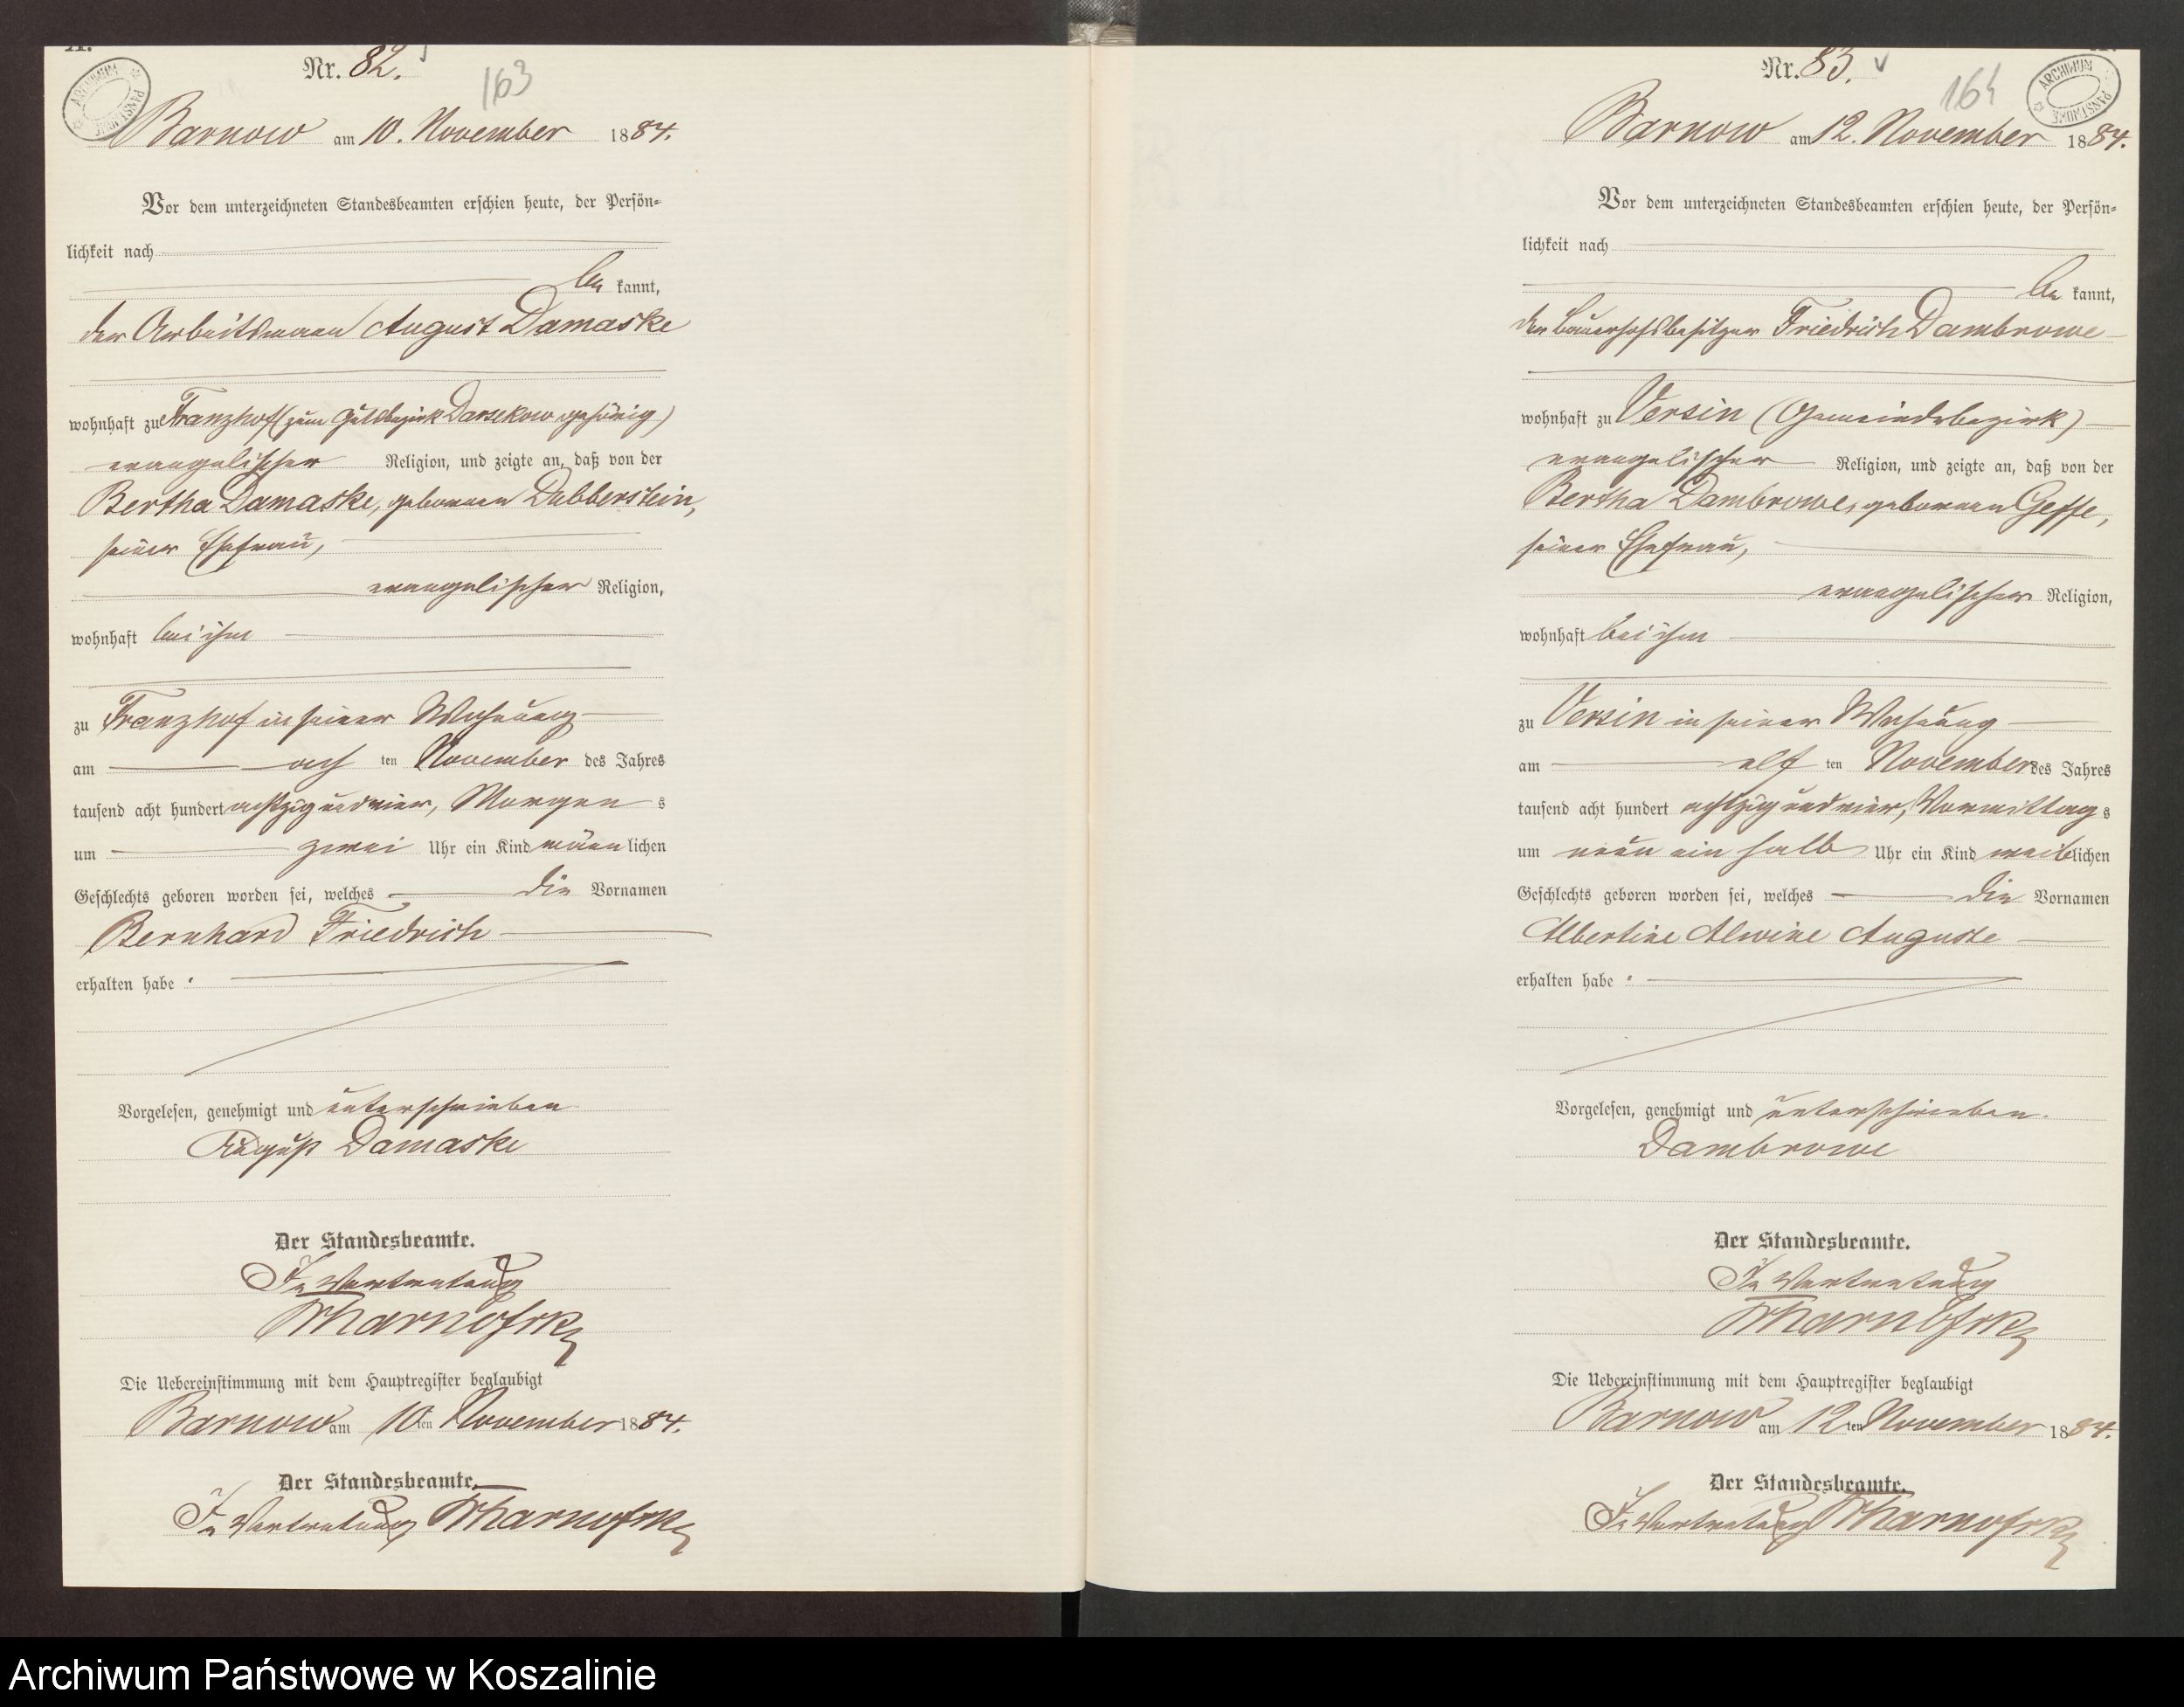 A.
Nr. 82.
163
ARCHIWUM PAŃSTWOWE
Barnow am 10. November 1884.
Vor dem unterzeichneten Standesbeamten erschien heute, der Persön-
lichkeit nach
be kannt,
der Arbeitsmann August Damaske
wohnhaft zu Franzhof (zum Gutsbezirk Darsekow gehörig)
evangelischer Religion, und zeigte an, daß von der
Bertha Damaske, geborenen Dubberstein,
seiner Ehefrau,
evangelischer Religion,
wohnhaft bei ihm
zu Franzhof in seiner Wohnung
am ach ten November des Jahres
tausend acht hundert achtzig und vier, Morgen s
um zwei Uhr ein Kind männ lichen
Geschlechts geboren worden sei, welches die Vornamen
Bernhard Friedrich
erhalten habe.
Vorgelesen, genehmigt und unterschrieben
August Damaske
Der Standesbeamte.
In Vertretung
Die Uebereinstimmung mit dem Hauptregister beglaubigt
Barnow am 10 ten November 1884.
Der Standesbeamte.
In Vertretung
A.
Nr. 83.
164
ARCHIWUM PAŃSTWOWE
Barnow am 12. November 1884.
Vor dem unterzeichneten Standesbeamten erschien heute, der Persön-
lichkeit nach
be kannt,
der Bauerhofsbesitzer Friedrich Dambrowe
wohnhaft zu Versin (Gemeindebezirk)
evangelischer Religion, und zeigte an, daß von der
Bertha Dambrowe, geborenen Geffe,
seiner Ehefrau,
evangelischer Religion,
wohnhaft bei ihm
zu Versin in seiner Wohnung
am elf ten November des Jahres
tausend acht hundert achtzig und vier, Vormittag s
um neun ein halb Uhr ein Kind weib lichen
Geschlechts geboren worden sei, welches die Vornamen
Albertine Alwine Auguste
erhalten habe.
Vorgelesen, genehmigt und unterschrieben.
Dambrowe
Der Standesbeamte.
In Vertretung
Die Uebereinstimmung mit dem Hauptregister beglaubigt
Barnow am 12 ten November 1884.
Der Standesbeamte.
In Vertretung
Archiwum Państwowe w Koszalinie